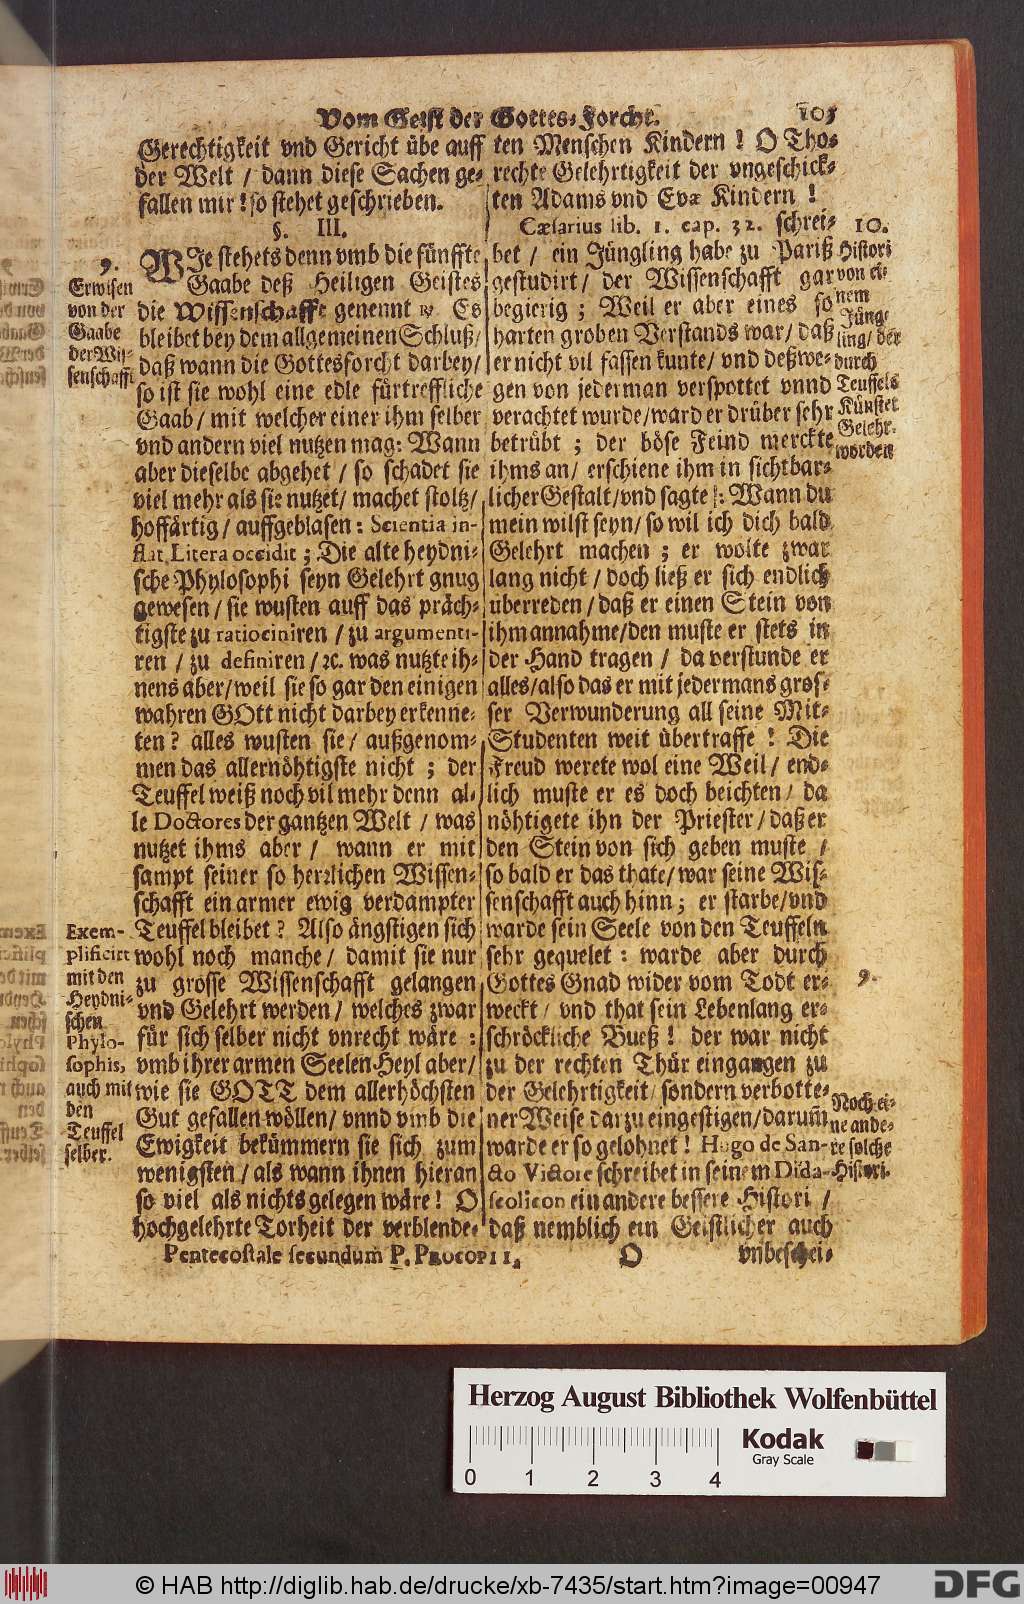 Vom Geist der Gottes-Forcht.
105
Gerechtigkeit vnd Gericht übe auff
der Welt / dann diese Sachen ge-
fallen mir! so stehet geschrieben.
§. III.
WJe stehets denn vmb die fünffte
Gaabe deß Heiligen Geistes
die Wissenschafft genennt ꝛc Es
bleibet bey dem allgemeinen Schluß /
daß wann die Gottesforcht darbey /
so ist sie wohl eine edle fürtreffliche
Gaab / mit welcher einer ihm selber
vnd andern viel nutzen mag: Wann
aber dieselbe abgehet / so schadet sie
viel mehr als sie nutzet / machet stoltz /
hoffärtig / auffgeblasen: Scientia in-
flat, Litera occidit; Die alte heydni-
sche Phylosophi seyn Gelehrt gnug
gewesen / sie wusten auff das präch-
tigste zu ratiociniren / zu argumenti-
ren / zu definiren / ꝛc. was nutzte ih-
nens aber / weil sie so gar den einigen
wahren GOtt nicht darbey erkenne-
ten? alles wusten sie / außgenom-
men das allernöhtigste nicht; der
Teuffel weiß noch vil mehr denn al-
le Doctores der gantzen Welt / was
nutzet ihms aber / wann er mit
sampt seiner so herrlichen Wissen-
schafft ein armer ewig verdampter
Teuffel bleibet? Also ängstigen sich
wohl noch manche / damit sie nur
zu grosse Wissenschafft gelangen
vnd Gelehrt werden / welches zwar
für sich selber nicht vnrecht wäre:
vmb ihrer armen Seelen Heyl aber /
wie sie GOTT dem allerhöchsten
Gut gefallen wöllen / vnnd vmb die
Ewigkeit bekümmern sie sich zum
wenigsten / als wann ihnen hieran
so viel als nichts gelegen wäre! O
hochgelehrte Torheit der verblende-
9.
Erwisen
von der
Gaabe
der Wis-
senschafft
Exem-
plificirt
mit den
Heydni-
schen
Phylo-
sophis,
auch mit
den
Teuffel
selber.
ten Menschen Kindern! O Tho-
rechte Gelehrtigkeit der vngeschick-
ten Adams vnd Evæ Kindern!
Cæsarius lib. 1. cap. 32. schrei-
bet / ein Jüngling habe zu Pariß
gestudirt / der Wissenschafft gar
begierig; Weil er aber eines so
harten groben Verstands war / daß
er nicht vil fassen kunte / vnd deßwe-
gen von jederman verspottet vnnd
verachtet wurde / ward er drüber sehr
betrübt; der böse Feind merckte
ihms an / erschiene ihm in sichtbar-
licher Gestalt / vnd sagte: Wann du
mein wilst seyn / so wil ich dich bald
Gelehrt machen; er wolte zwar
lang nicht / doch ließ er sich endlich
überreden / daß er einen Stein von
ihm annahme / den muste er stets in
der Hand tragen / da verstunde er
alles / also das er mit jedermans gros-
ser Verwunderung all seine Mit-
Studenten weit übertraffe! Die
Freud werete wol eine Weil / end-
lich muste er es doch beichten / da
nöhtigete ihn der Priester / daß er
den Stein von sich geben muste /
so bald er das thate / war seine Wis-
senschafft auch hinn; er starbe / vnd
warde sein Seele von den Teuffeln
sehr gequelet: warde aber durch
Gottes Gnad wider vom Todt er-
weckt / vnd that sein Lebenlang er-
schröckliche Bueß! der war nicht
zu der rechten Thür eingangen zu
der Gelehrtigkeit / sondern verbotte-
ner Weise darzu eingestigen / darum̃
warde er so gelohnet! Hugo de San-
cto Victore schreibet in seinem Dida-
scolicon ein andere bessere Histori /
daß nemblich ein Geistlicher auch
10.
Histori
von ei-
nem
Jüng-
ling / der
durch
Teuffels
Künste
Gelehr-
worden
9.
Noch ei-
ne ande-
re solche
Histori.
Pentecostale secundum P. PROCOPII.
O
vnbeschei-
Herzog August Bibliothek Wolfenbüttel
Kodak
Gray Scale
0 1 2 3 4
© HAB http://diglib.hab.de/drucke/xb-7435/start.htm?image=00947
DFG